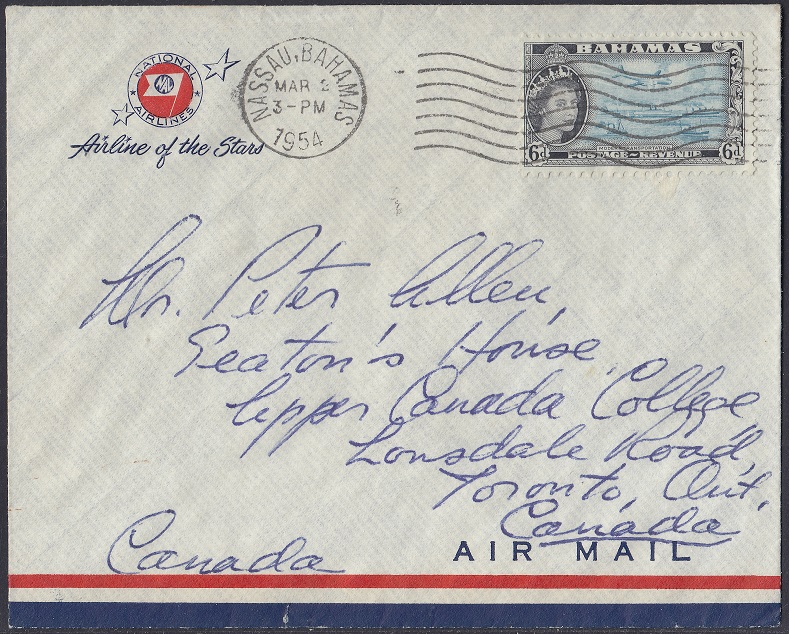 NATIONAL
NAL
AIRLINES
Airline of the Stars
NASSAU, BAHAMAS
MAR 2
3-PM
1954
BAHAMAS
MODERN TRANSPORTATION
6d
POSTAGE REVENUE
6d
Mr. Peter Allen,
Seaton's House
Upper Canada College,
Lonsdale Road,
Toronto, Ont.
Canada
Canada
AIR MAIL